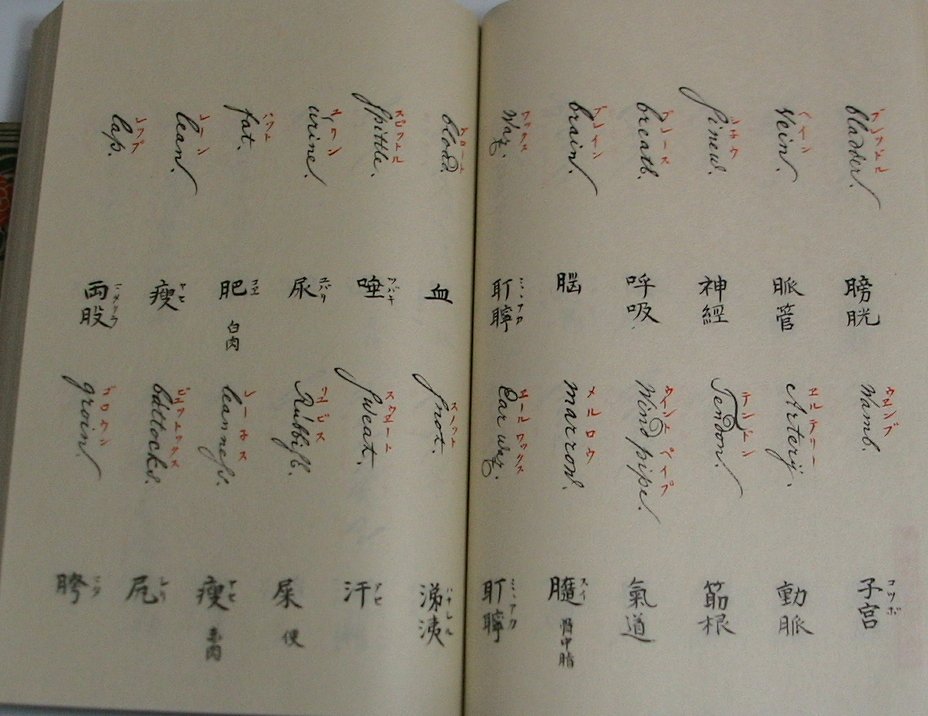 ブレッドル
bladder.
膀胱
ウエンブ
Wamb.
子宮 コツボ
ヘイン
Vein.
脈管
エルテリー
Artery.
動脈
シネウ
ſinew.
神經
テンドン
Tendon.
筋根
ブレース
breath.
呼吸
ウイント ペイプ
Wind pipe.
氣道
ブレイン
brain.
脳
メルロウ
marrow.
髄 スイ
脊中脂
ワックス
Wax.
耵聹 ミヽアカ
エールワックス
Ear wax.
耵聹 ミヽアカ
ブロート
blood.
血
スノット
ſnot.
涕洟 ハナシル
スピッテル
ſpittle.
唾 ツバキ
スウエート
ſweat.
汗 アセ
urine.
尿 ユバリ
Rubbiſh.
屎
便
ハット
fat.
肥 コエ
白肉
レーネス
leanneſs.
瘦 ヤセ
レーン
lean.
瘦 ヤセ
ビュットックス
buttocks.
尻 シリ
レップ
lap.
両股
ゴロウン
groin.
胯 マタ